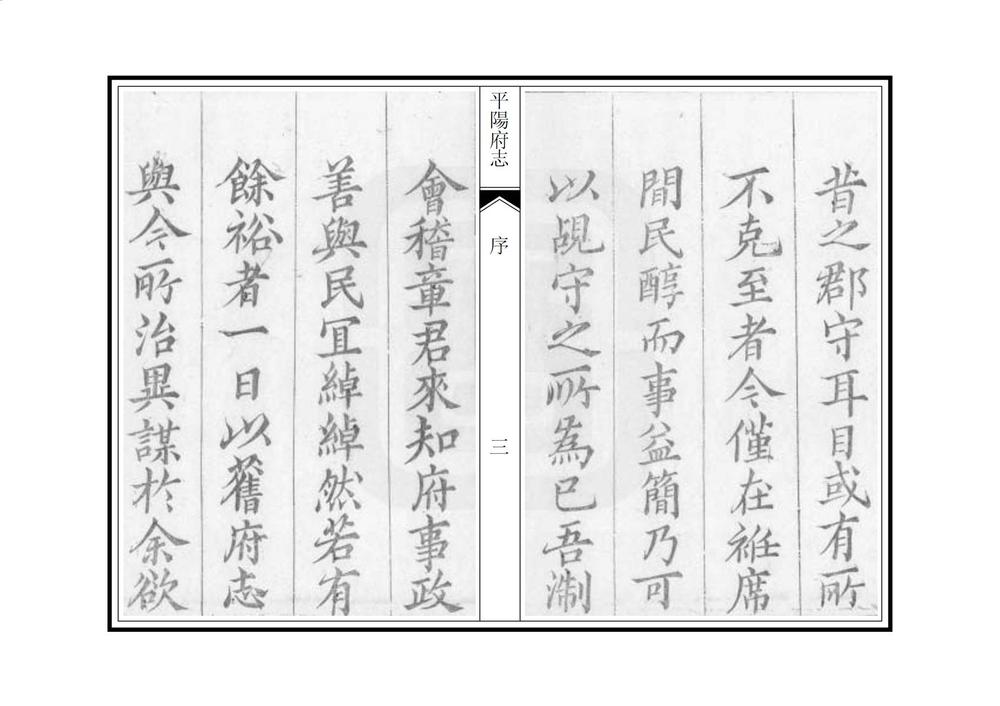 昔之郡守耳目或有所
不克至者今僅在袵席
間民醇而事益簡乃可
以覘守之所為已吾淛
平陽府志
序
三
會稽章君來知府事政
善與民冝綽綽然若有
餘裕者一日以舊府志
與今所治異謀於余欲